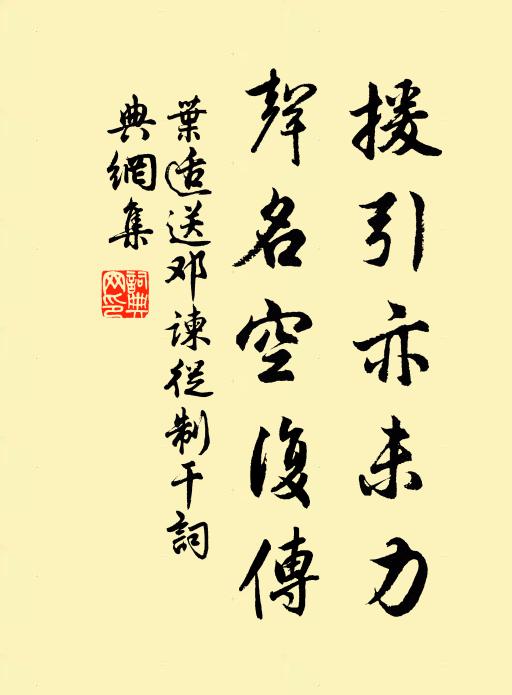 援引亦未力
聲名空復傳
葉适送邓諫從制干詞
典網集
詞典网印